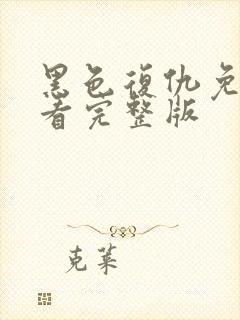 黑色復仇免
看完整版
克莱